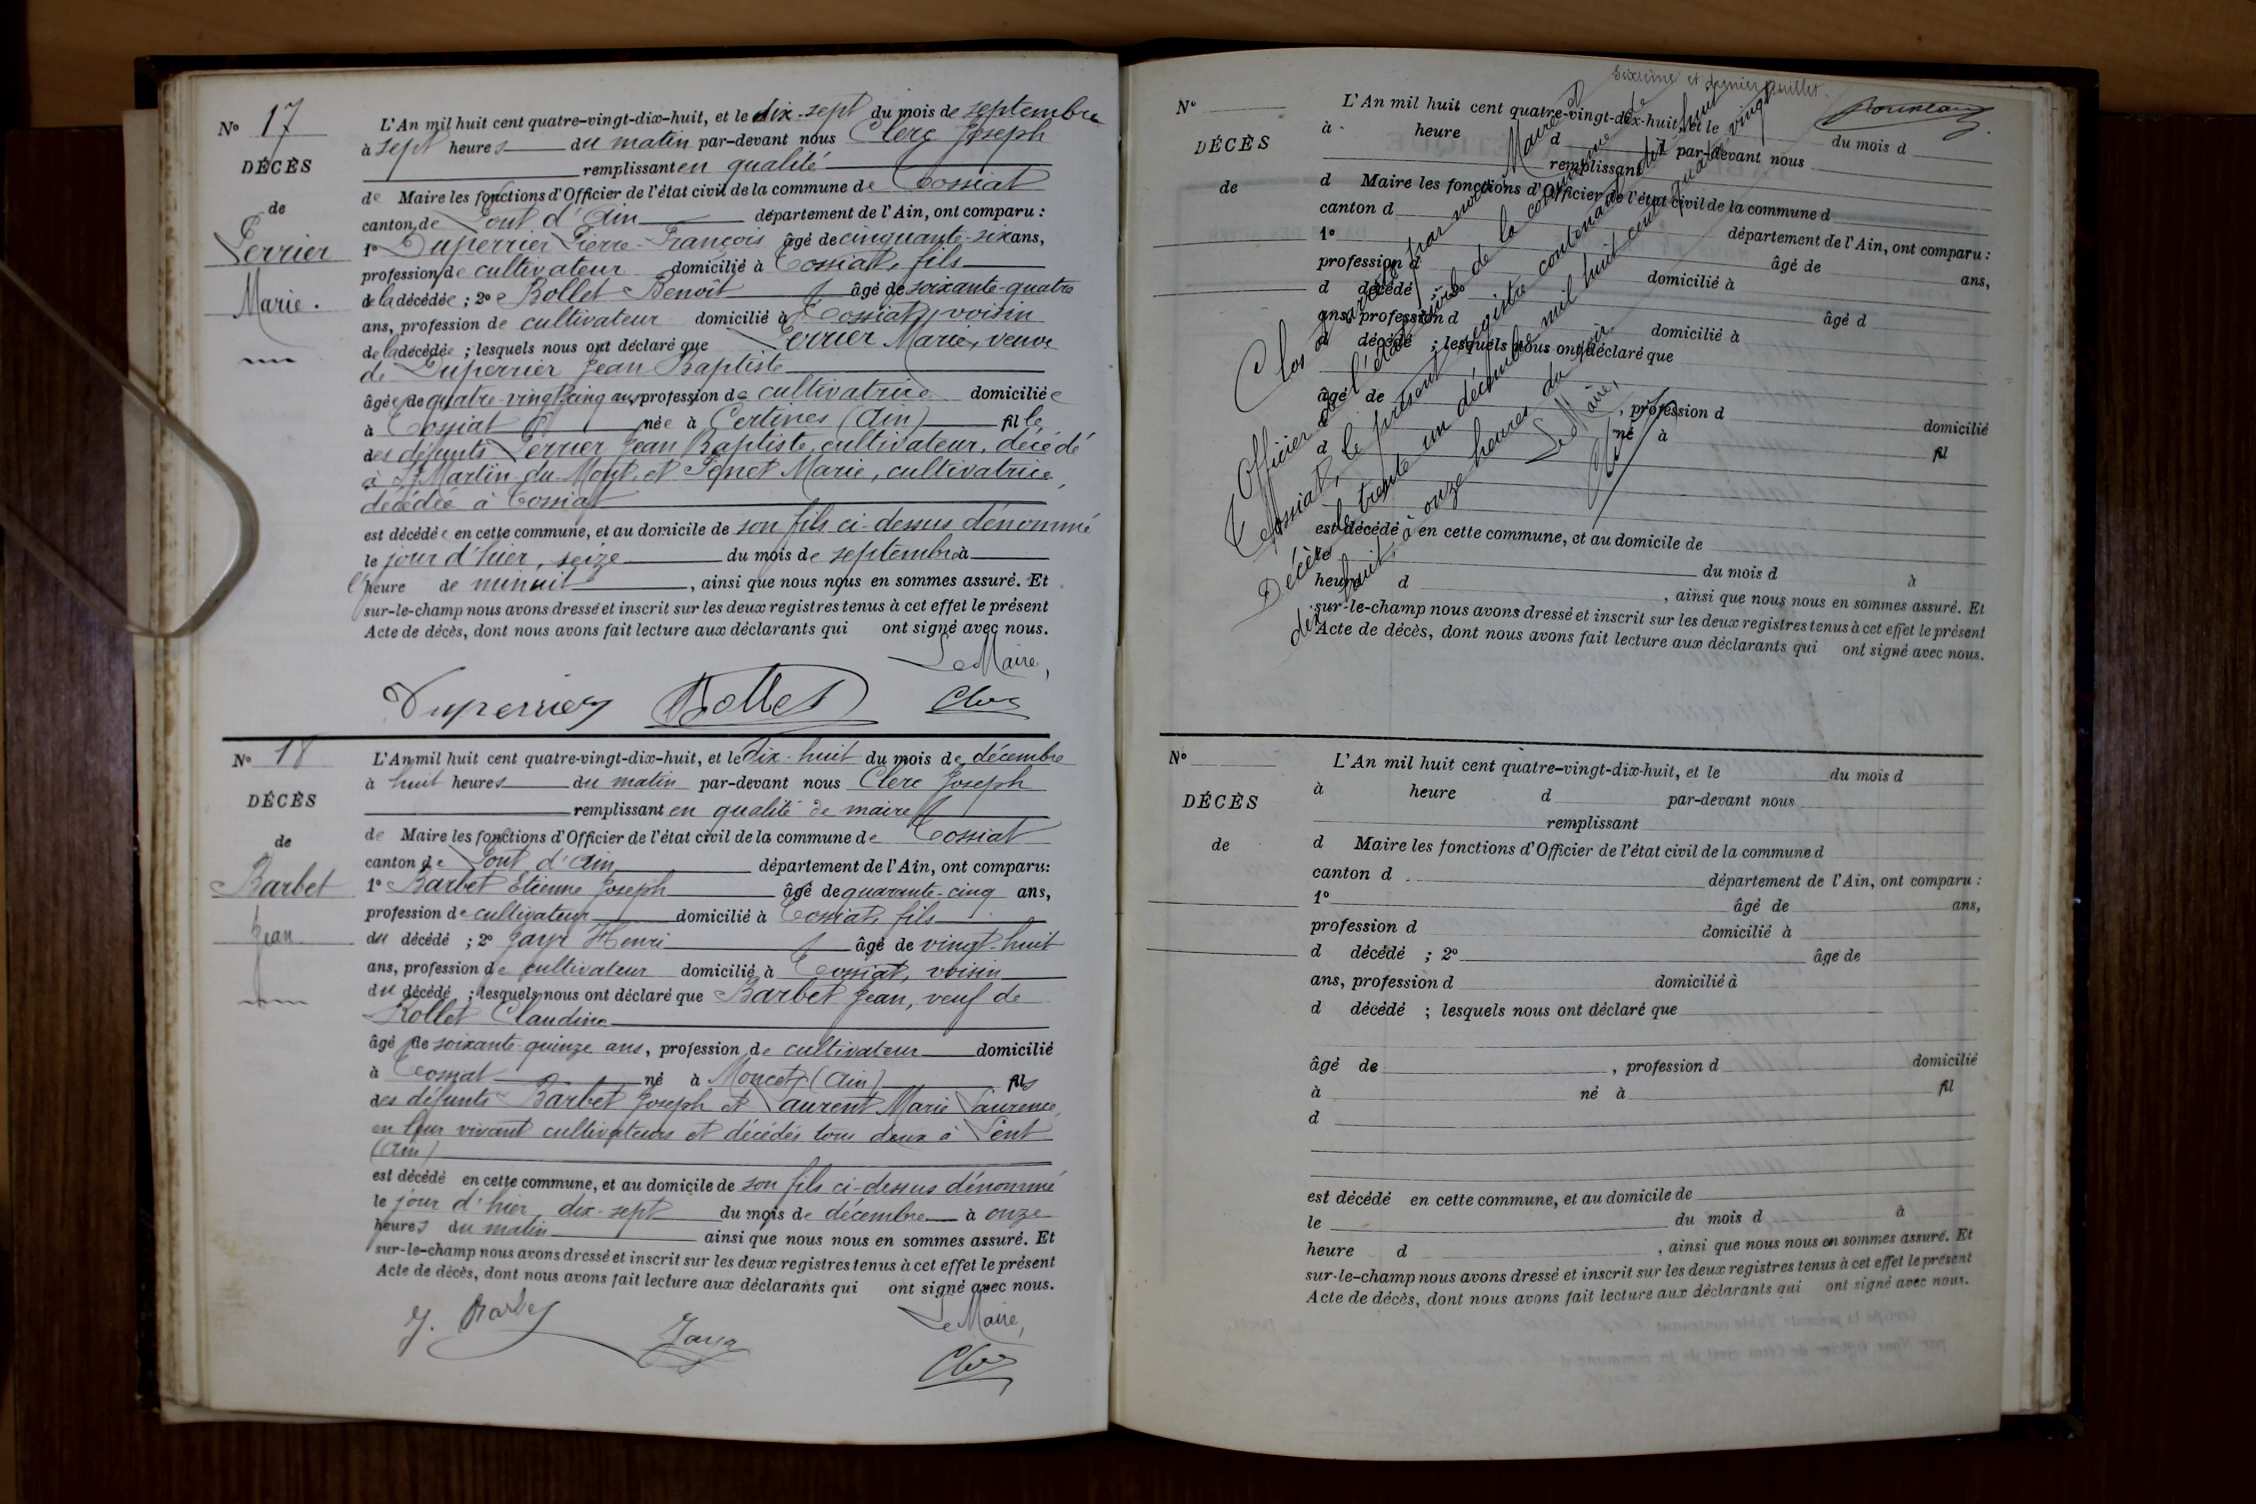 N° 17
DÉCÈS
de
Perrier
Marie.
L'An mil huit cent quatre-vingt-dix-huit, et le dix-sept du mois de septembre
à sept heures du matin par-devant nous Clerc Joseph
remplissant en qualité
de Maire les fonctions d'Officier de l'état civil de la commune de Tossiat
canton de Pont d'Ain département de l'Ain, ont comparu :
1° Duperrier Pierre-François âgé de cinquante-six ans,
profession de cultivateur domicilié à Tossiat, fils
de la décédée ; 2° Bollet Benoît âgé de soixante-quatre
ans, profession de cultivateur domicilié à Tossiat, voisin
de la décédée ; lesquels nous ont déclaré que Perrier Marie, veuve
de Duperrier Jean Baptiste
âgée de quatre-vingt cinq ans profession de cultivatrice domiciliée
à Tossiat née à Certines (Ain) fille
des défunts Perrier Jean Baptiste, cultivateur, décédé
à St Martin-du-Mont, et Marie, cultivatrice,
décédée à Tossiat
est décédée en cette commune, et au domicile de son fils ci-dessus dénommé
le jour d'hier, seize du mois de septembre à
l'heure de minuit, ainsi que nous nous en sommes assuré. Et
sur-le-champ nous avons dressé et inscrit sur les deux registres tenus à cet effet le présent
Acte de décès, dont nous avons fait lecture aux déclarants qui ont signé avec nous.
Le Maire,
Duperrier Bollet Clerc
N° 18
DÉCÈS
de
Barbet
Jean
L'An mil huit cent quatre-vingt-dix-huit, et le dix-huit du mois de décembre
à huit heures du matin par-devant nous Clerc Joseph
remplissant en qualité de maire
de Maire les fonctions d'Officier de l'état civil de la commune de Tossiat
canton de Pont d'Ain département de l'Ain, ont comparu:
1° Barbet Etienne Joseph âgé de quarante-cinq ans,
profession de cultivateur domicilié à Tossiat, fils
du décédé ; 2° Jayr Henri âgé de vingt-huit
ans, profession de cultivateur domicilié à Tossiat, voisin
du décédé ; lesquels nous ont déclaré que Barbet Jean, veuf de
Rollet Claudine
âgé de soixante-quinze ans, profession de cultivateur domicilié
à Tossiat né à Moncet (Ain) fils
des défunts Barbet Joseph et Laurent Marie Laurence,
en leur vivant cultivateurs et décédés tous deux à Lent
(Ain)
est décédé en cette commune, et au domicile de son fils ci-dessus dénommé
le jour d'hier, dix-sept du mois de décembre à onze
heures du matin ainsi que nous nous en sommes assuré. Et
sur-le-champ nous avons dressé et inscrit sur les deux registres tenus à cet effet le présent
Acte de décès, dont nous avons fait lecture aux déclarants qui ont signé avec nous.
Le Maire,
J. Barbet Jayr Clerc
Sixième et dernier feuillet.
N°
DÉCÈS
de
L'An mil huit cent quatre-vingt-dix-huit, et le du mois d
à heure d par-devant nous
remplissant
d Maire les fonctions d'Officier de l'état civil de la commune d
canton d département de l'Ain, ont comparu :
1° âgé de ans,
profession d domicilié à
d décédé ; 2° âgé d
ans, profession d domicilié à
d décédé ; lesquels nous ont déclaré que
âgé de , profession d domicilié
à né à fil
d
est décédé en cette commune, et au domicile de
le du mois d à
heure d , ainsi que nous nous en sommes assuré. Et
sur-le-champ nous avons dressé et inscrit sur les deux registres tenus à cet effet le présent
Acte de décès, dont nous avons fait lecture aux déclarants qui ont signé avec nous.
Clos et arrêté par nous Maire et
Officier de l'état civil de la commune de
Tossiat, le présent registre contenant dix huit
Décès le trente un décembre mil huit cent quatre vingt
dix huit à onze heures du soir.
Le Maire,
N°
DÉCÈS
de
L'An mil huit cent quatre-vingt-dix-huit, et le du mois d
à heure d par-devant nous
remplissant
d Maire les fonctions d'Officier de l'état civil de la commune d
canton d département de l'Ain, ont comparu :
1° âgé de ans,
profession d domicilié à
d décédé ; 2° âgé de
ans, profession d domicilié à
d décédé ; lesquels nous ont déclaré que
âgé de , profession d domicilié
à né à fil
d
est décédé en cette commune, et au domicile de
le du mois d à
heure d , ainsi que nous nous en sommes assuré. Et
sur-le-champ nous avons dressé et inscrit sur les deux registres tenus à cet effet le présent
Acte de décès, dont nous avons fait lecture aux déclarants qui ont signé avec nous.